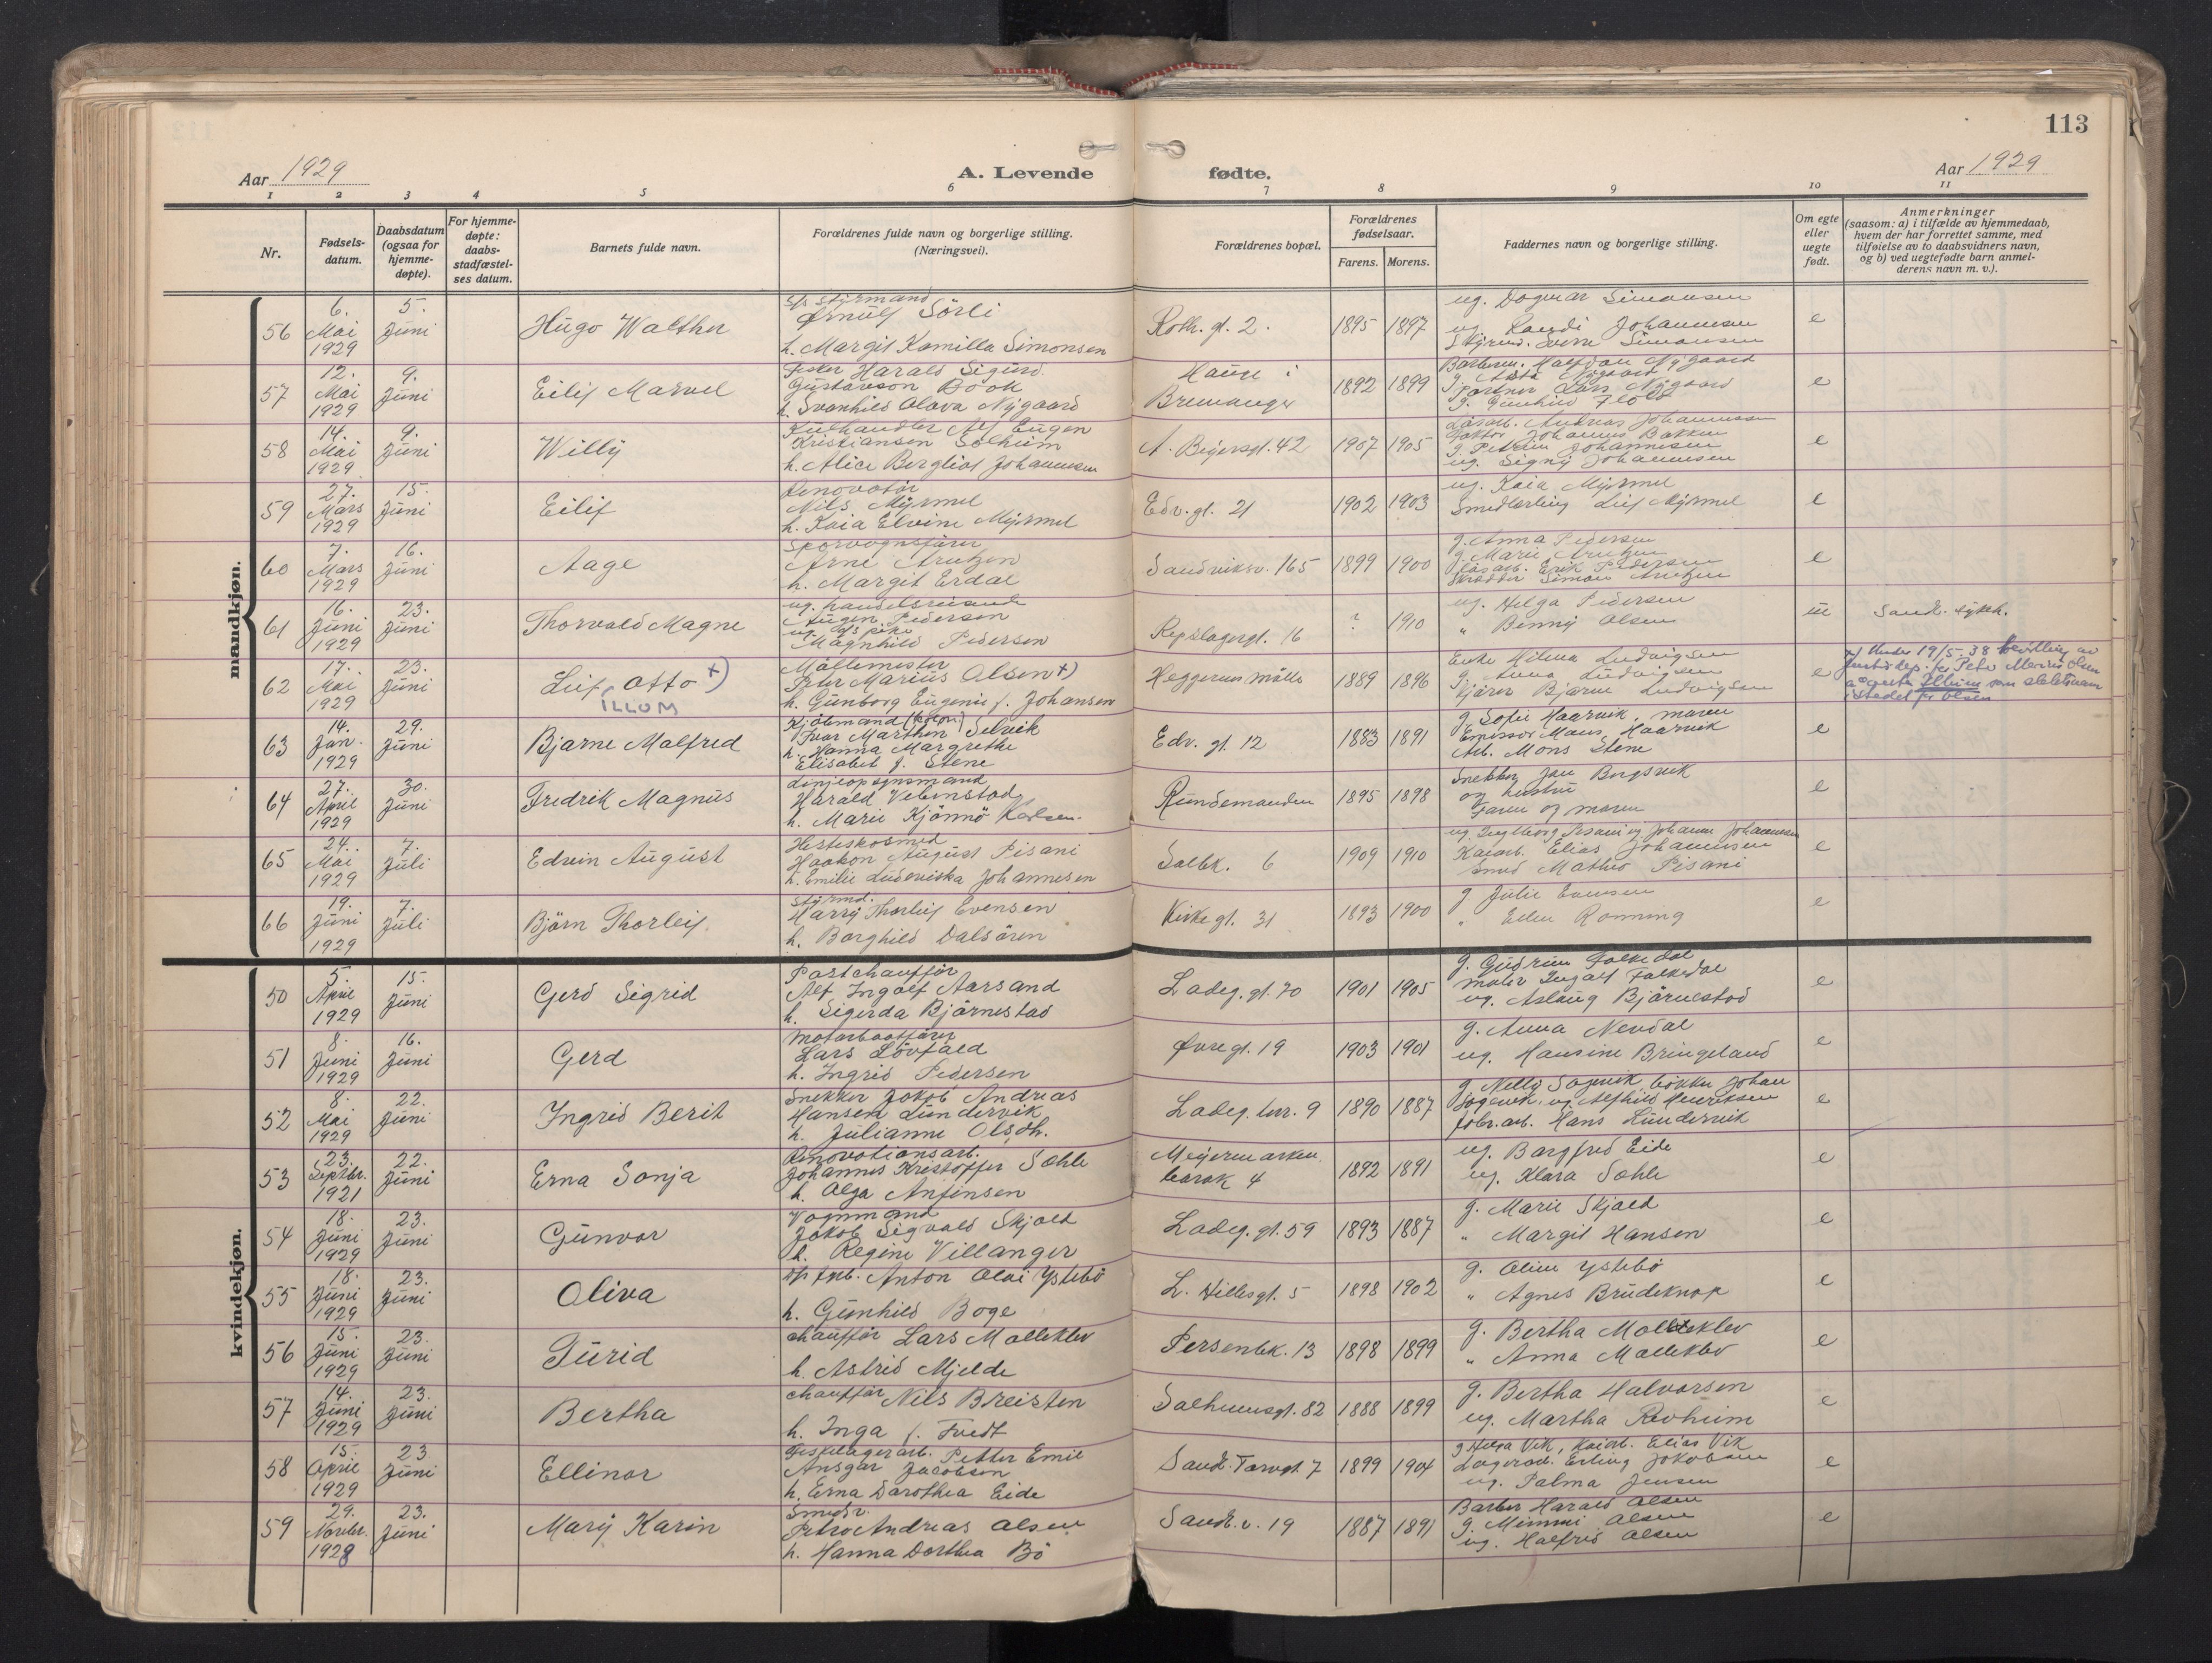 113
Aar 1929
A. Levende fødte.
Aar 1929
1 2 3 4 5 6 7 8 9 10 11
Nr.
Fødsels-
datum.
Daabsdatum
(ogsaa for
hjemme-
døpte).
For hjemme-
døpte:
daabs-
stadfæstel-
ses datum.
Barnets fulde navn.
Forældrenes fulde navn og borgerlige stilling.
(Næringsvei).
Forældrenes bopæl.
Forældrenes
fødselsaar.
Farens. Morens.
Faddernes navn og borgerlige stilling.
Om egte
eller
uegte
født.
Anmerkninger
(saasom: a) i tilfælde av hjemmedaab,
hvem der har forrettet samme, med
tilføielse av to daabsvidners navn,
og b) ved uegtefødte barn anmel-
derens navn m. v.).
mandkjøn.
56
6.
Mai
1929
5.
Juni
Hugo Walther
Styrmand
Ørnulf Sörli
h. Margit Kamilla Simonsen
Roth. gt. 2.
1895 1897
ug. Dagmar Simonsen
ug. Randi Johannesen
Styrmd. Sverre Simonsen
e
57
12.
Mai
1929
9.
Juni
Eilif Marvel
Fisker Harald Sigurd
Gustavson Book
h. Svanhild Olava Nygaard
Hauge i
Bremanger
1892 1899
Barberm. Halfdan Nygaard
g. Asta Nygaard
Lars Nygaard
g. Gunhild
e
58
14.
Mai
1929
9.
Juni
Willy
Kulhandler Alf Eugen
Kristiansen Solheim
h. Alice Bergliot Johannesen
A. Beyersgt. 42
1907 1905
Lösarb. Andreas Johannesen
Faktor Johannes Bakken
g. Petrine Johannesen
ug. Signy Johannesen
e
59
27.
Mars
1929
15.
Juni
Eilif
Renovatör
Nils Myrmel
h. Kaia Elvine Myrmel
Edv. gt. 21
1902 1903
ug. Kaia Myrmel
Smedlærling Leif Myrmel
e
60
7.
Mars
1929
16.
Juni
Aage
Sporvognsfører
Arne Arntzen
h. Margit Erdal
Sandviksv. 165
1899 1900
g. Anna Pedersen
g. Marie Arntzen
Lösarb. Erik Pedersen
Skrædder Simon Arntzen
e
61
16.
Juni
1929
23.
Juni
Thorvald Magne
ug. handelsreisende
Augen Pedersen
ug. pike
Magnhild Pedersen
Repslagergt. 16
? 1910
ug. Helga Pedersen
" Benny Olsen
u
Sandv. sykeh.
62
17.
Mai
1929
23.
Juni
Leif, Otto +)
ILLUM
Möllemester
Peter Marius Olsen +)
h. Gunborg Eugenie f. Johansen
Heggernes mölle
1889 1896
Enke Hilma Ludvigsen
g. Anna Ludvigsen
Kjører Bjarne Ludvigsen
e
+) Under 19/5-38 bevilling av
Justisdep. for Peter Marius Olsen
a anta Illum som slektsnavn
istedet for Olsen
63
14.
Jan.
1929
29.
Juni
Bjarne Malfred
Kjöbmand (kolon)
Ivar Marthin Selvik
h. Hanna Margrethe
Elisabet f. Stene
Edv. gt. 12
1883 1891
g. Sofie Haarvik, moren
Emissær Mons Haarvik
Arb. Mons Stene
e
64
27.
April
1929
30.
Juni
Fredrik Magnus
Linjeopsynsmand
Harald Velenstad
h. Marie Kjönnö Karlsen
Rundemanden
1895 1898
Snekker Jan Borgsvik
og hustru
Faren og moren
e
65
24.
Mai
1929
7.
Juli
Edvin August
Hesteskosmed
Haakon August Pisani
h. Emilie Ludoviska Johannesen
Solbk. 6
1909 1910
ug. Ingeborg Pisani ug. Johanne Johannesen
Kaiarb. Elias Johannesen
Smed Mathis Pisani
e
66
19.
Juni
1929
7.
Juli
Björn Thorleif.
Styrmd.
Harry Thorleif Evensen
h. Borghild Dalsören
Kirkegt. 31
1893 1900
g Julie Evensen
" Ellen Rønning
e
kvindekjøn.
50
5.
April
1929
15.
Juni
Gerd Sigrid
Postchauffør
Alf Ingolf Aarsand
h. Sigerda Bjørnestad
Ladeg. gt. 70
1901 1905
g. Gudrun Falkedal
maler Ingolf Falkedal
ug. Aslaug Bjørnestad
e
51
8.
Juni
1929
16.
Juni
Gerd
Motorbaatfører
Lars Lövfald
h. Ingrid Pedersen
Øvregt. 19
1903 1901
g. Anna Nevdal
ug. Hansine Bringeland
e
52
8.
Mai
1929
22.
Juni
Ingrid Berit
Snekker Jakob Andreas
Hansen Lundervik
h. Julianne Olsdh.
Ladeg. terr. 9
1890 1887
g. Nelly Sogevik, bökker Johan
Sogevik, ug Alfhild Henriksen
fabr. arb. Hans Lundervik
e
53
23.
Septbr.
1921
22.
Juni
Erna Sonja
Renovationsarb.
Johannes Kristoffer Sæhle
h. Olga Anfinsen
Meyermarken
barak 4
1892 1891
ug. Bargfred Eide
ug. Klara Sæhle
e
54
18.
Juni
1929
23.
Juni
Gunvor
Vognmand
Jakob Sigvald Skjold
h. Regine Villanger
Ladeg. gt. 59
1893 1887
g. Marie Skjold
" Margit Hansen
e
55
18.
Juni
1929
23.
Juni
Oliva
Anton Olai Ystebö
h. Gunhild Boge
L. Hillesgt. 5
1898 1902
g. Oline Ystebö
" Agnes Brudeknap
e
56
15.
Juni
1929
23.
Juni
Turid
chauffør Lars Molleklev
h. Astrid Mjelde
Persenbk. 13
1898 1899
g. Bertha Molleklev
" Anna Molleklev
e
57
14.
Juni
1929
23.
Juni
Bertha
chauffør Nils Breisten
h. Inga f. Tvedt
Salhusgt. 82
1888 1899
g. Bertha Halvorsen
ug. Martha Revheim
e
58
15.
April
1929
23
Juni
Ellinor
Fiskelagerarb. Petter Emil
Ansgar Jacobsen
h. Erna Dorothea Eide
Sandv. Torvgt. 7
1899 1904
g Helga Vik, Kaiarb. Elias Vik
Lagerarb. Erling Jakobsen
ug. Palma Jensen
e
59
29.
Novbr.
1928
23.
Juni
Mary Karin
Smedsv.
Petro Andreas Olsen
h. Hanna Dorthea Bö
Sandv. v. 19
1887 1891
Barber Harald Olsen
g. Mimmi Olsen
ug. Halfrid Olsen
e